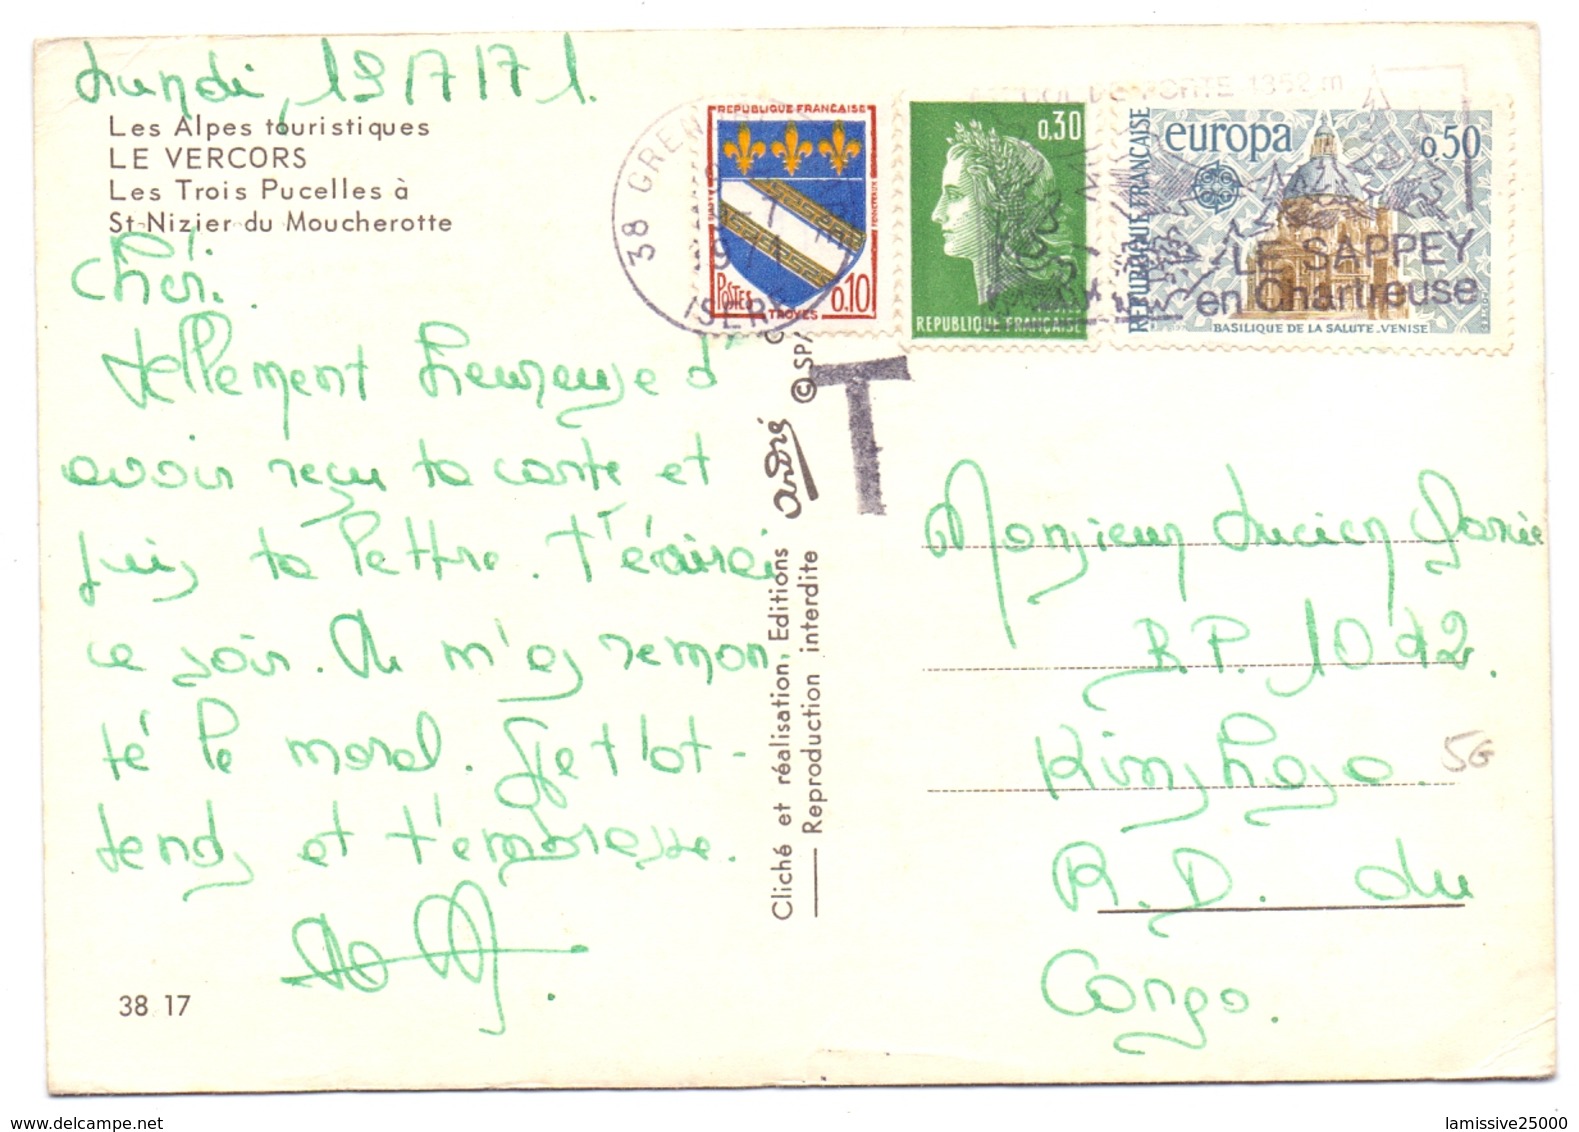 Lundi, 19/7/71.
Les Alpes touristiques
LE VERCORS
Les Trois Pucelles à
St-Nizier du Moucherotte
Chéri.
tellement heureuse d'
avoir reçu ta carte et
puis ta lettre. T'écrirai
ce soir. Tu m'as remon
té le moral. Je t'at-
tends et t'embrasse.
38 17
REPUBLIQUE FRANÇAISE
POSTES
0,10
TROYES
0,30
REPUBLIQUE FRANÇAISE
REPUBLIQUE FRANÇAISE
europa
0,50
BASILIQUE DE LA SALUTE_VENISE
38 GRENOBLE
ISERE
COL DE PORTE 1352 m
LE SAPPEY
en Chartreuse
T
Cliché et réalisation, Editions André © SPA
Reproduction interdite
Monsieur Lucien
B.P. 1042.
Kinshasa.
R.D. du
Congo.
56
lamissive25000